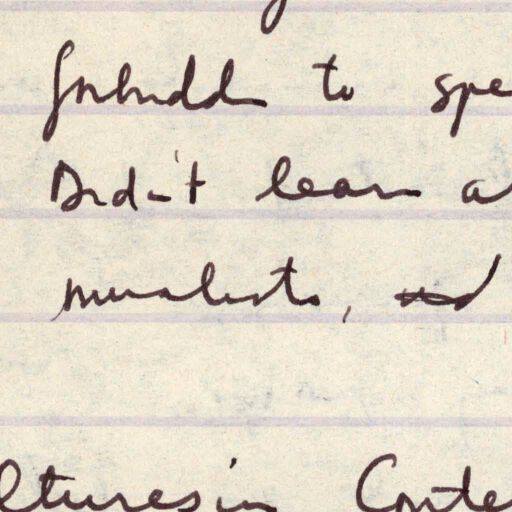 forbidden to spe
Didn't learn a
muralists,
ltures in Conte